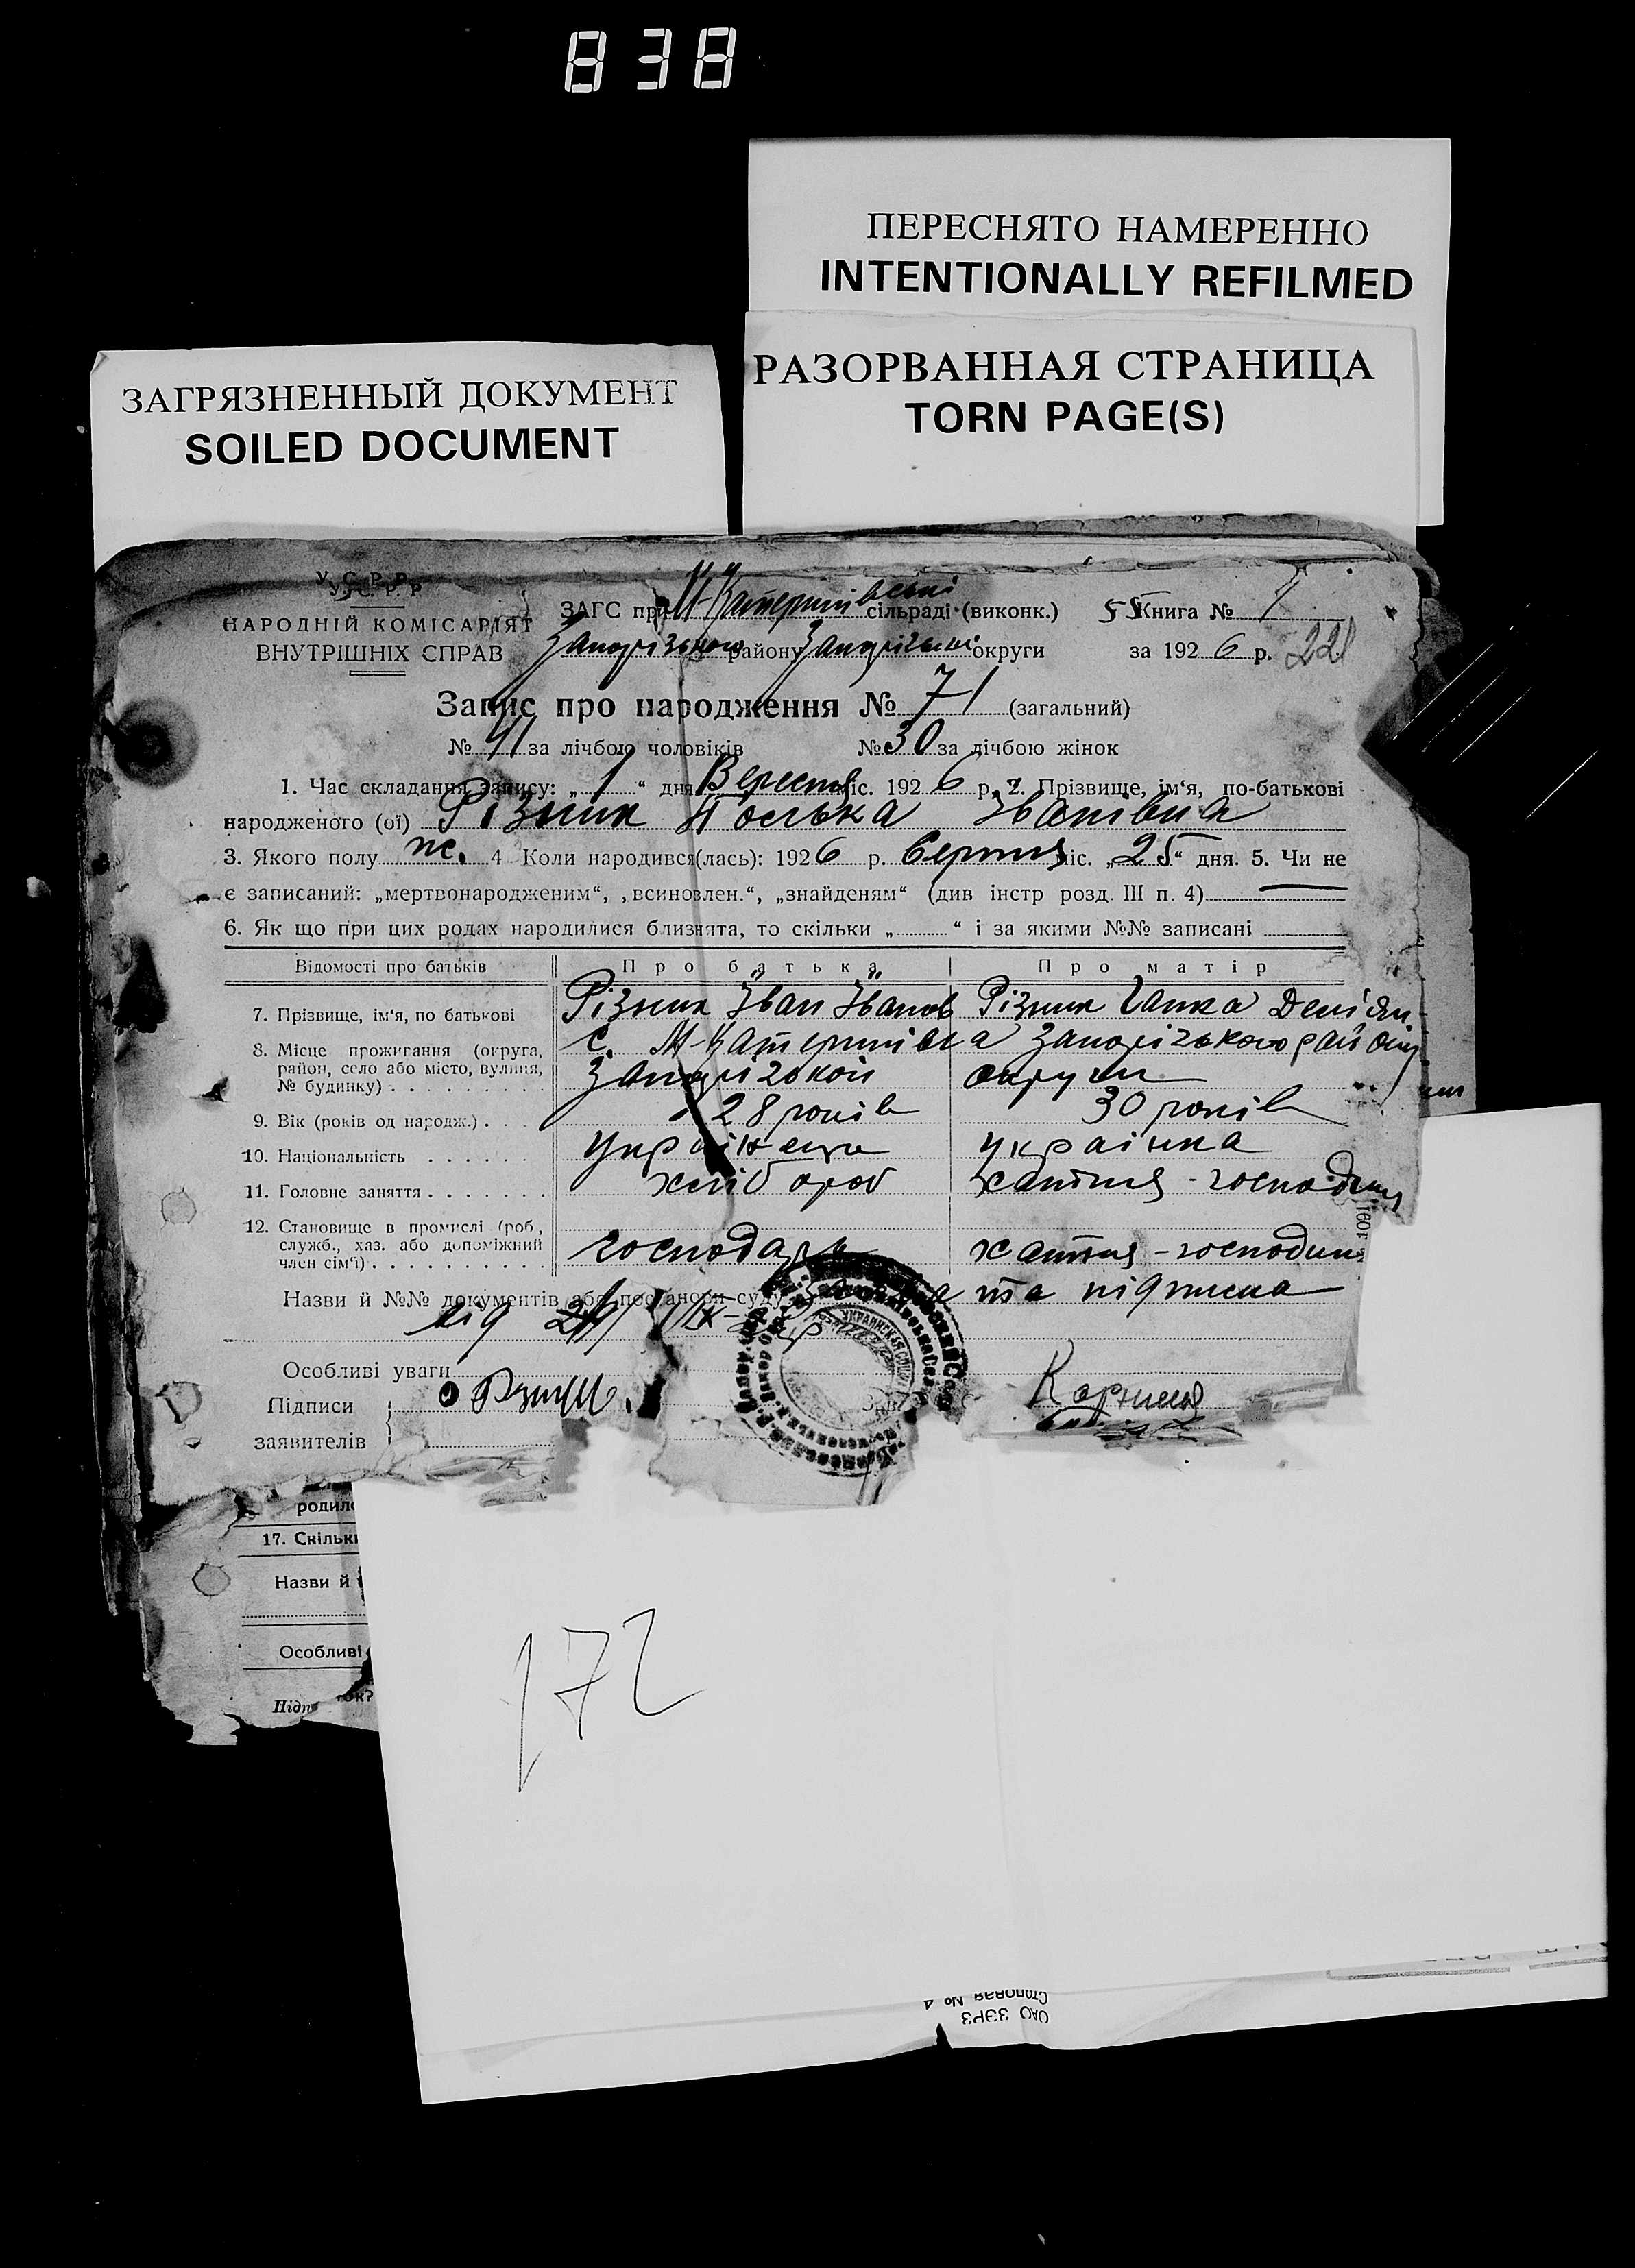 838
ПЕРЕСНЯТО НАМЕРЕННО
INTENTIONALLY REFILMED
РАЗОРВАННАЯ СТРАНИЦА
TORN PAGE(S)
ЗАГРЯЗНЕННЫЙ ДОКУМЕНТ
SOILED DOCUMENT
У. С. Р. Р.
НАРОДНІЙ КОМІСАРІЯТ
ВНУТРІШНІХ СПРАВ
ЗАГС при М-Катеринівські сільраді (виконк.) Книга № 1
Запорізького району Запорізької округи за 1926 р. 221
Запис про народження № 71 (загальний)
№ 41 за лічбою чоловіків № 30 за лічбою жінок
1. Час складання запису: „1“ дня Вересня міс. 1926 р. 2. Прізвище, ім‘я, по-батькові
народженого (ої) Різник Іванівна
3. Якого полу ж. 4 Коли народився(лась): 1926 р. Серпня міс. „25“ дня. 5. Чи не
є записаний: „мертвонародженим“, „всиновлен.“, „знайденям“ (див інстр розд. III п. 4)
6. Як що при цих родах народилися близнята, то скільки „ “ і за якими №№ записані
Відомості про батьків Про батька Про матір
7. Прізвище, ім‘я, по батькові Різник Іван Іванов Різник Ганка Демʼян.
8. Місце прожигання (округа, с. М-Катеринівка Запорізького району
район, село або місто, вулиця,
№ будинку) Запорізькой округи
9. Вік (років од народж.) 28 років 30 років
10. Національність українець українка
11. Головне заняття хлібороб хатня - господиня
12. Становище в промислі (роб,
служб., хаз. або допоміжний господарь хатня - господин
член сім‘ї)
Назви й №№ документів або постанови суду та підписка
від
Особливі уваги
Підписи
заявителів
родил
17. Скільк
Назви й
Особливі
Підп
ок?
172
ОАО ЗЭРЗ
Столовая № 4